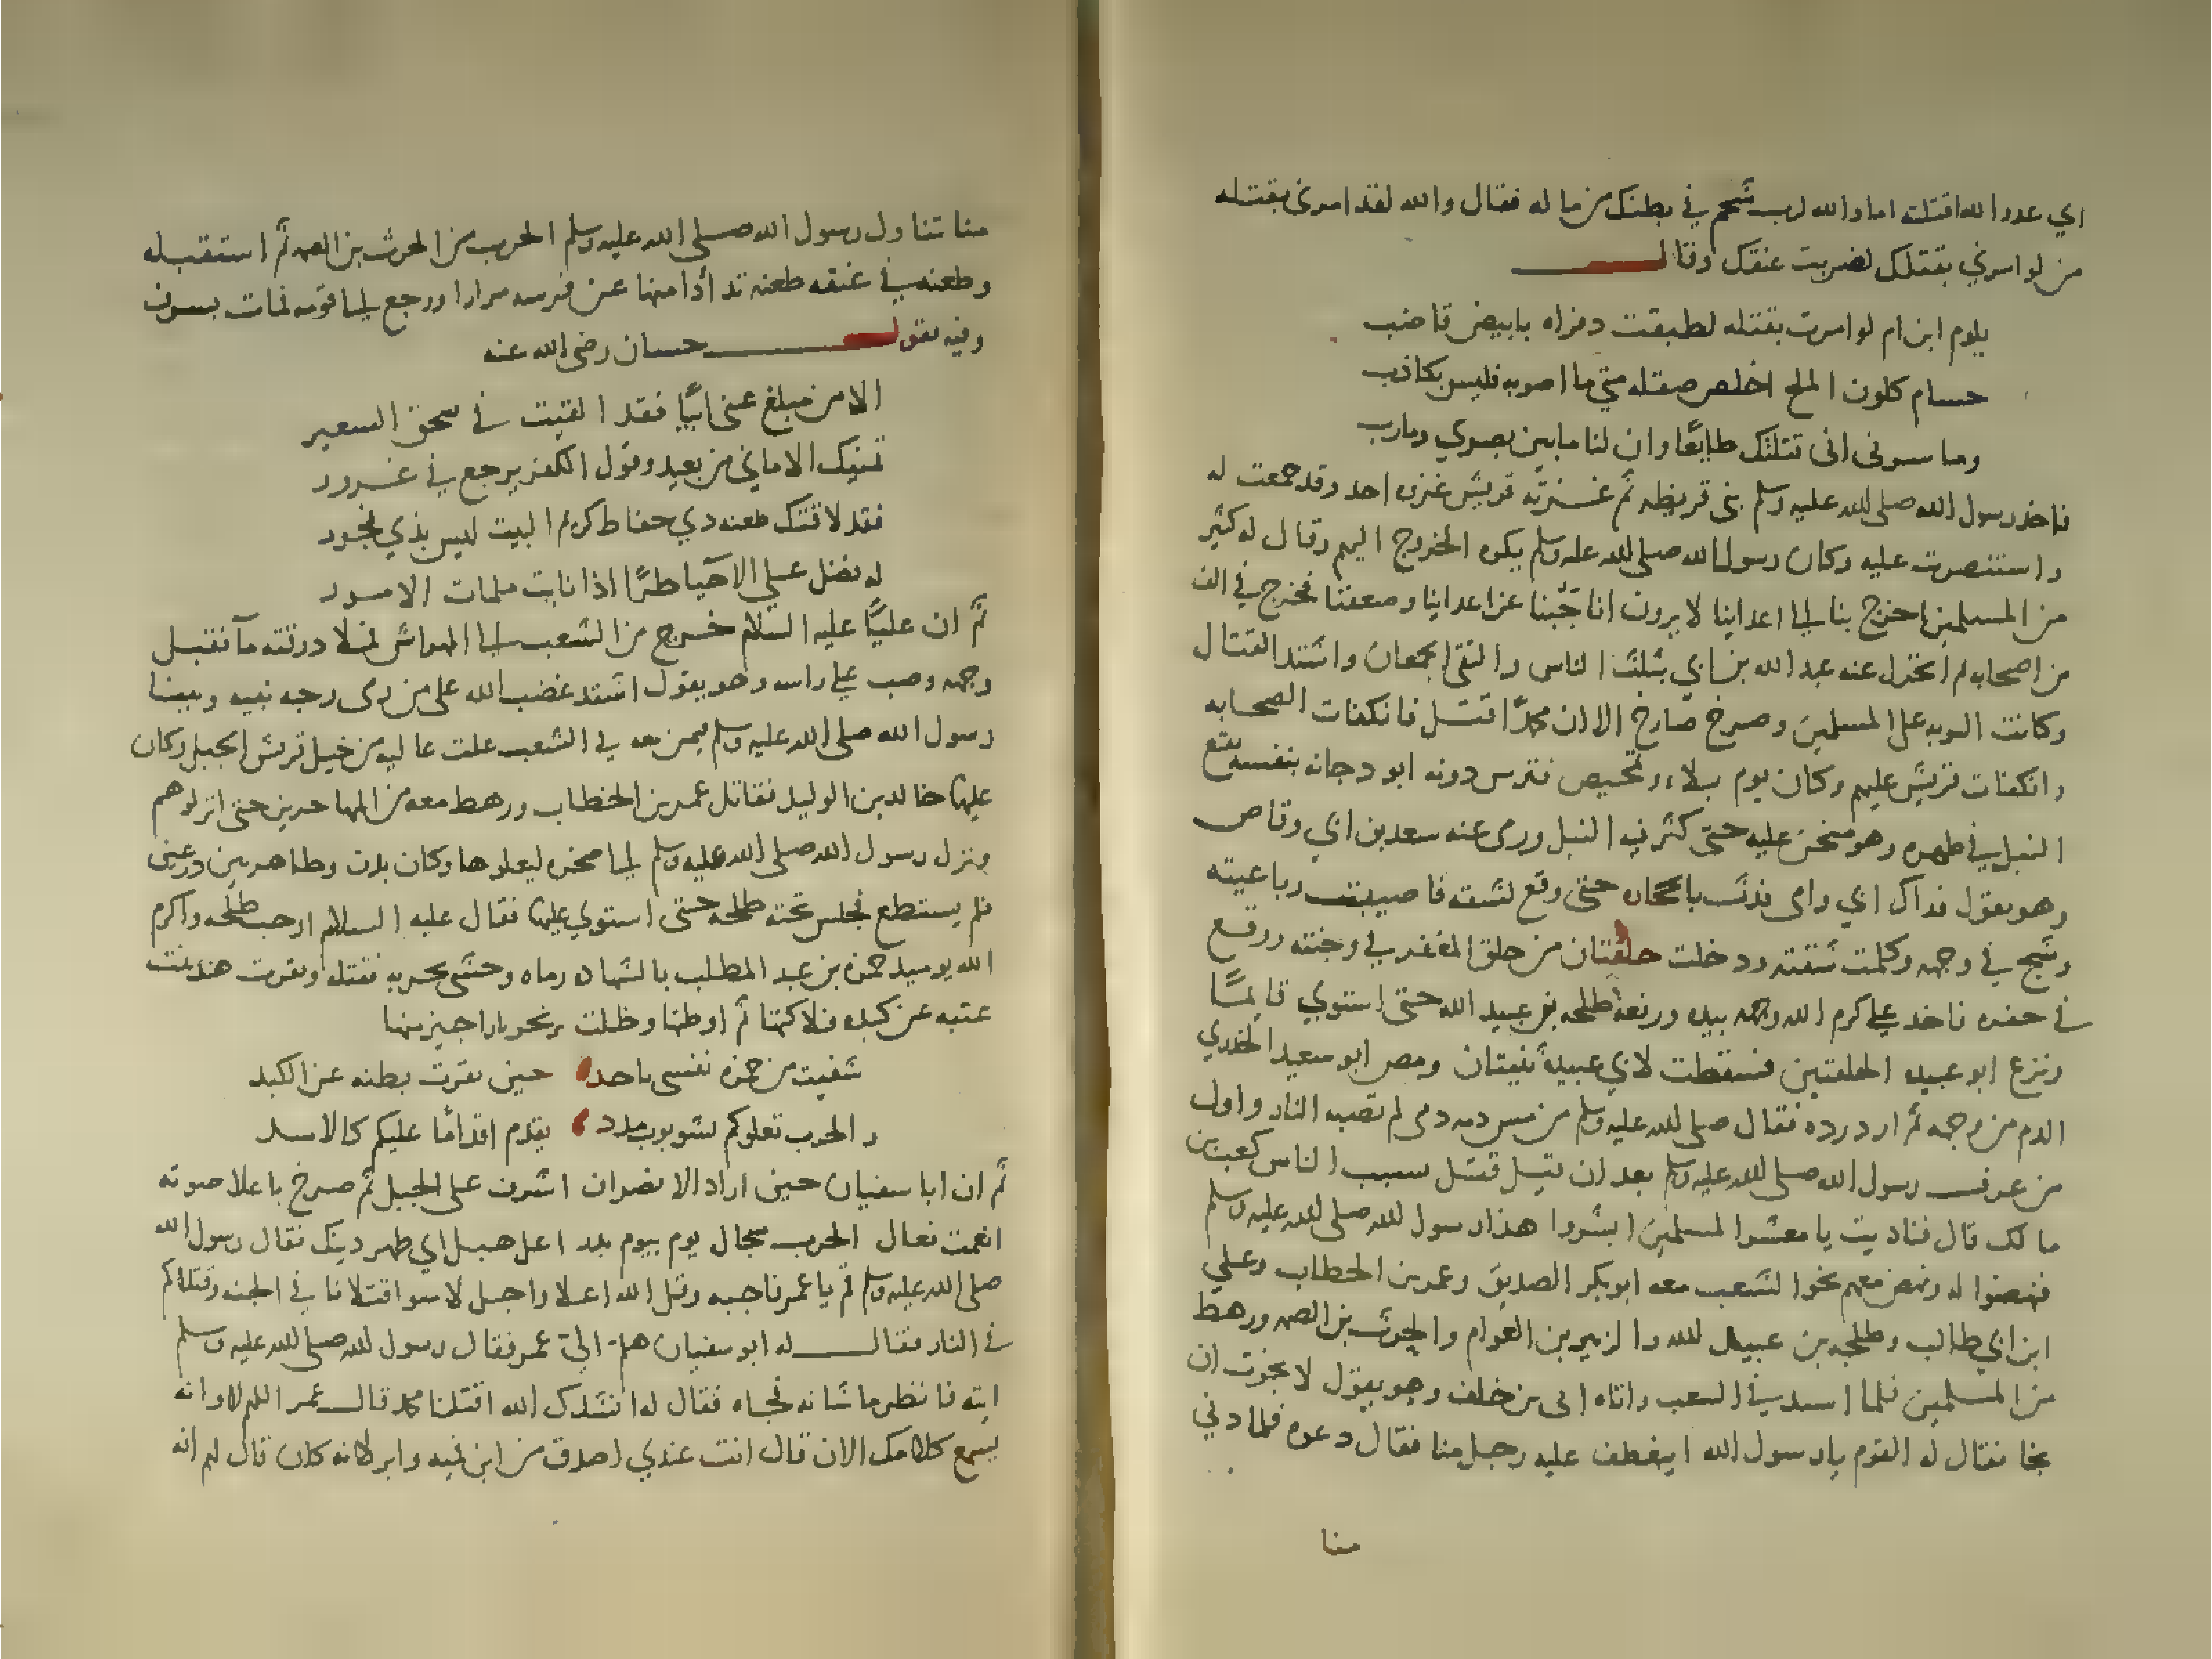 اي عدو الله اقتلته اما والله لرب شحم في بطنك من ماله فقال والله لقد امرني بقتله
من لو امرني بقتلك لضربت عنقك وقال
يلوم ابن ام لو امرت بقتله لطبقت دفراه بابيض قاضب
حسام كلون الملح اخلص صقله متي ما اصوبه فليس بكاذب
وما سرني اني قتلتك طايعًا وان لنا مابين بصري ومارب
فاخذ رسول الله صلى الله عليه وسلم بني قريظه ثم غزته قريش غزوه احد وقد جمعت له
واستنصرت عليه وكان رسول الله صلى الله عليه وسلم يكره الخروج اليهم وقال له كثير
من المسلمين اخرج بنا الي اعداينا لا يرون انا جَبُنا عن اعداينا وضعفنا فخرج في الف
من اصحابه ثم انخزل عنه عبد الله بن ابي بثلث الناس والتقي الجمعان واشتد القتال
وكانت النوبه على المسلمين وصرخ صارخ الا ان محمدًا قتل فانكفات الصحابه
وانكفات قريش عليهم وكان يوم بلاء وتمحيص فترس دونه ابو دجانه بنفسه يقع
النبل في ظهره وهو منحن عليه حتى كثر فيه النبل ورمى عنه سعد بن ابي وقاص
وهو يقول فداك ابي وامى فدث بالحجاره حتى وقع لشقه فاصيبت رباعيته
وشج في وجهه وكلمت شفته ودخلت حلقتان من حلق المغفر في وجنته ووقع
في حفره فاخذ علي كرم الله وجهه بيده ورفعه طلحه بن عبيد الله حتى استوي قايمًا
ونزع ابو عبيده الحلقتين فسقطت لابي عبيدة ثنيتان ومص ابو سعيد الخدري
الدم من وجهه ثم ازدرده فقال صلى الله عليه وسلم من مس دمه دمي لم تصبه النار واول
من عرف رسول الله صلى الله عليه وسلم بعد ان قيل قتل سبب الناس كعب بن
مالك قال فناديت يا معشر المسلمين ابشروا هذا رسول الله صلى الله عليه وسلم
فنهضوا له ونهض معهم نحو الشعب معه ابو بكر الصديق وعمر بن الخطاب وعلي
ابن ابي طالب وطلحه بن عبيد الله والزبير بن العوام والحرث بن الصمه ورهط
من المسلمين فلما اسند في الشعب واتاه ابى بن خلف وهو يقول لا نجوت ان
نجا فقال له القوم يا رسول الله ايعطف عليه رجل منا فقال دعوه فلما دني
منا
منا تناول رسول الله صلى الله عليه وسلم الحربه من الحرث بن الصمه ثم استقبله
وطعنه في عنقه طعنه تداأدا منها عن فرسه مرارا ورجع الي قومه فمات بسرف
وفيه يقول حسان رضي الله عنه
الا من مبلغ عني ابيًا فقد القيت في سحق السعير
تمنيك الاماني من بعيد وقول الكفر يرجع في غرور
فقد لاقتك طعنه ذي حفاظ كريم البيت ليس بذي فجور
له فضل علي الاحيا طرًا اذا نابت ملمات الامور
ثم ان عليًا عليه السلام خرج من الشعب الي المهراس فملا درقته مآ فقبل
وجهه وصب علي راسه وهو يقول اشتد غضب الله على من دمى وجه نبيه وبينا
رسول الله صلى الله عليه وسلم بمن معه في الشعب علت عاليه من خيل قريش الجبل وكان
عليها خالد بن الوليد فقاتل عمر بن الخطاب ورهط معه من المهاجرين حتى انزلوهم
ونزل رسول الله صلى الله عليه وسلم الي صخره ليعلوها وكان بدن وظاهر بين درعين
فلم يستطع فجلس تحته طلحه حتى استوي عليها فقال عليه السلام اوجب طلحه واكرم
الله يوميد حمزه بن عبد المطلب بالشهاده رماه وحشي بحربه فقتله وبقرت هند بنت
عتبه عن كبده فلاكتها ثم لفظتها وظلت ترتجز بارا جيز منها
شفيت من حمزه نفسي باحد حين بقرت بطنه عن الكبد
والحرب تعلوكم بشوبوب برد يقدم اقدامًا عليكم كالاسد
ثم ان ابا سفيان حين اراد الانصراف اشرف على الجبل ثم صرخ باعلا صوته
انعمت فعال الحرب سجال يوم بيوم بدر اعل هبل اي ظهر دينك فقال رسول الله
صلى الله عليه وسلم قم يا عمر فاجبه وقل الله اعلا واجل لا سوا قتلانا في الجنه وقتلاكم
في النار فقال له ابو سفيان هلم الي عمر فقال رسول الله صلى الله عليه وسلم
ايته فانظر ما شانه فجاه فقال له انشدك الله اقتلنا محمد قال عمر اللهم لا وانه
ليسمع كلامك الان قال انت عندي اصدق من ابن قميه وابر كانه كان قال لهم انه